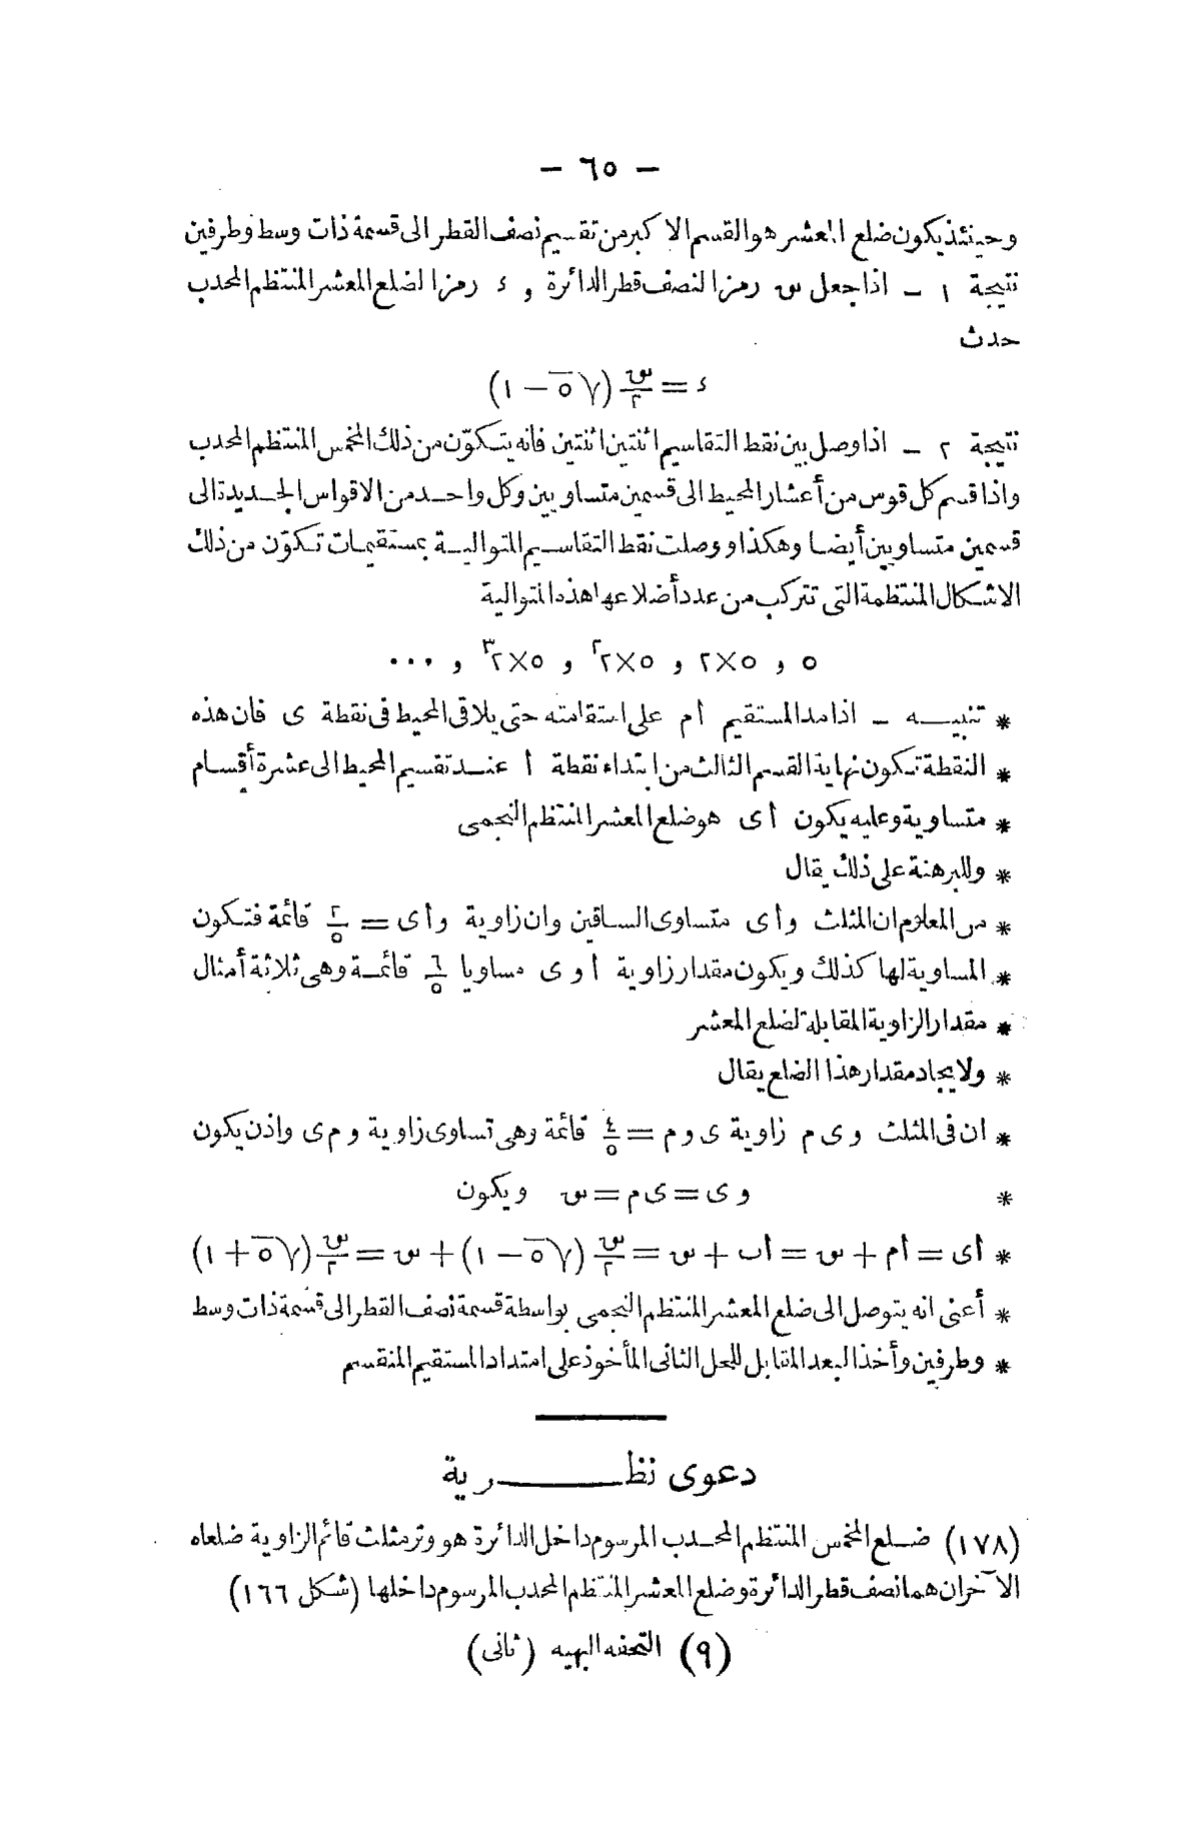 — ٦٥ —
وحينئذ يكون ضلع المعشر هو القسم الاكبر من تقسيم نصف القطر الى قسمة ذات وسط وطرفين
نتيجة ١ ـ اذا جعل س رمزا لنصف قطر الدائرة و ء رمزا لضلع المعشر المنتظم المحدب
حدث
ء = س/٢ (√٥ − ١)
نتيجة ٢ ـ اذا وصل بين نقط التقاسيم اثنتين اثنتين فانه يتكوّن من ذلك المخمس المنتظم المحدب
واذا قسم كل قوس من أعشار المحيط الى قسمين متساويين وكل واحد من الاقواس الجديدة الى
قسمين متساويين أيضا وهكذا ووصلت نقط التقاسيم المتوالية بمستقيمات تكوّن من ذلك
الاشكال المنتظمة التى تتركب من عدد أضلاعها هذه المتوالية
٥ و ٥×٢ و ٥×٢^٢ و ٥×٢^٣ و ...
* تنبيه ـ اذا مد المستقيم أم على استقامته حتى يلاقى المحيط فى نقطة ى فان هذه
* النقطة تكون نهاية القسم الثالث من ابتداء نقطة أ عند تقسيم المحيط الى عشرة أقسام
* متساوية وعليه يكون أى هو ضلع المعشر المنتظم النجمى
* وللبرهنة على ذلك يقال
* من المعلوم ان المثلث وأى متساوى الساقين وان زاوية وأى = ٢/٥ قائمة فتكون
* المساوية لها كذلك ويكون مقدار زاوية أوى مساويا ٦/٥ قائمة وهى ثلاثة أمثال
* مقدار الزاوية المقابلة لضلع المعشر
* ولايجاد مقدار هذا الضلع يقال
* ان فى المثلث وىم زاوية ىوم = ٤/٥ قائمة وهى تساوى زاوية ومى واذن يكون
* وى = ىم = س ويكون
* أى = أم + س = أب + س = س/٢ (√٥ − ١) + س = س/٢ (√٥ + ١)
* أعنى انه يتوصل الى ضلع المعشر المنتظم النجمى بواسطة قسمة نصف القطر الى قسمة ذات وسط
* وطرفين وأخذ البعد المقابل للحل الثانى المأخوذ على امتداد المستقيم المنقسم
دعوى نظرية
(١٧٨) ضلع المخمس المنتظم المحدب المرسوم داخل الدائرة هو وتر مثلث قائم الزاوية ضلعاه
الآخران هما نصف قطر الدائرة وضلع المعشر المنتظم المحدب المرسوم داخلها (شكل ١٦٦)
(٩) التحفه البهيه (ثانى)